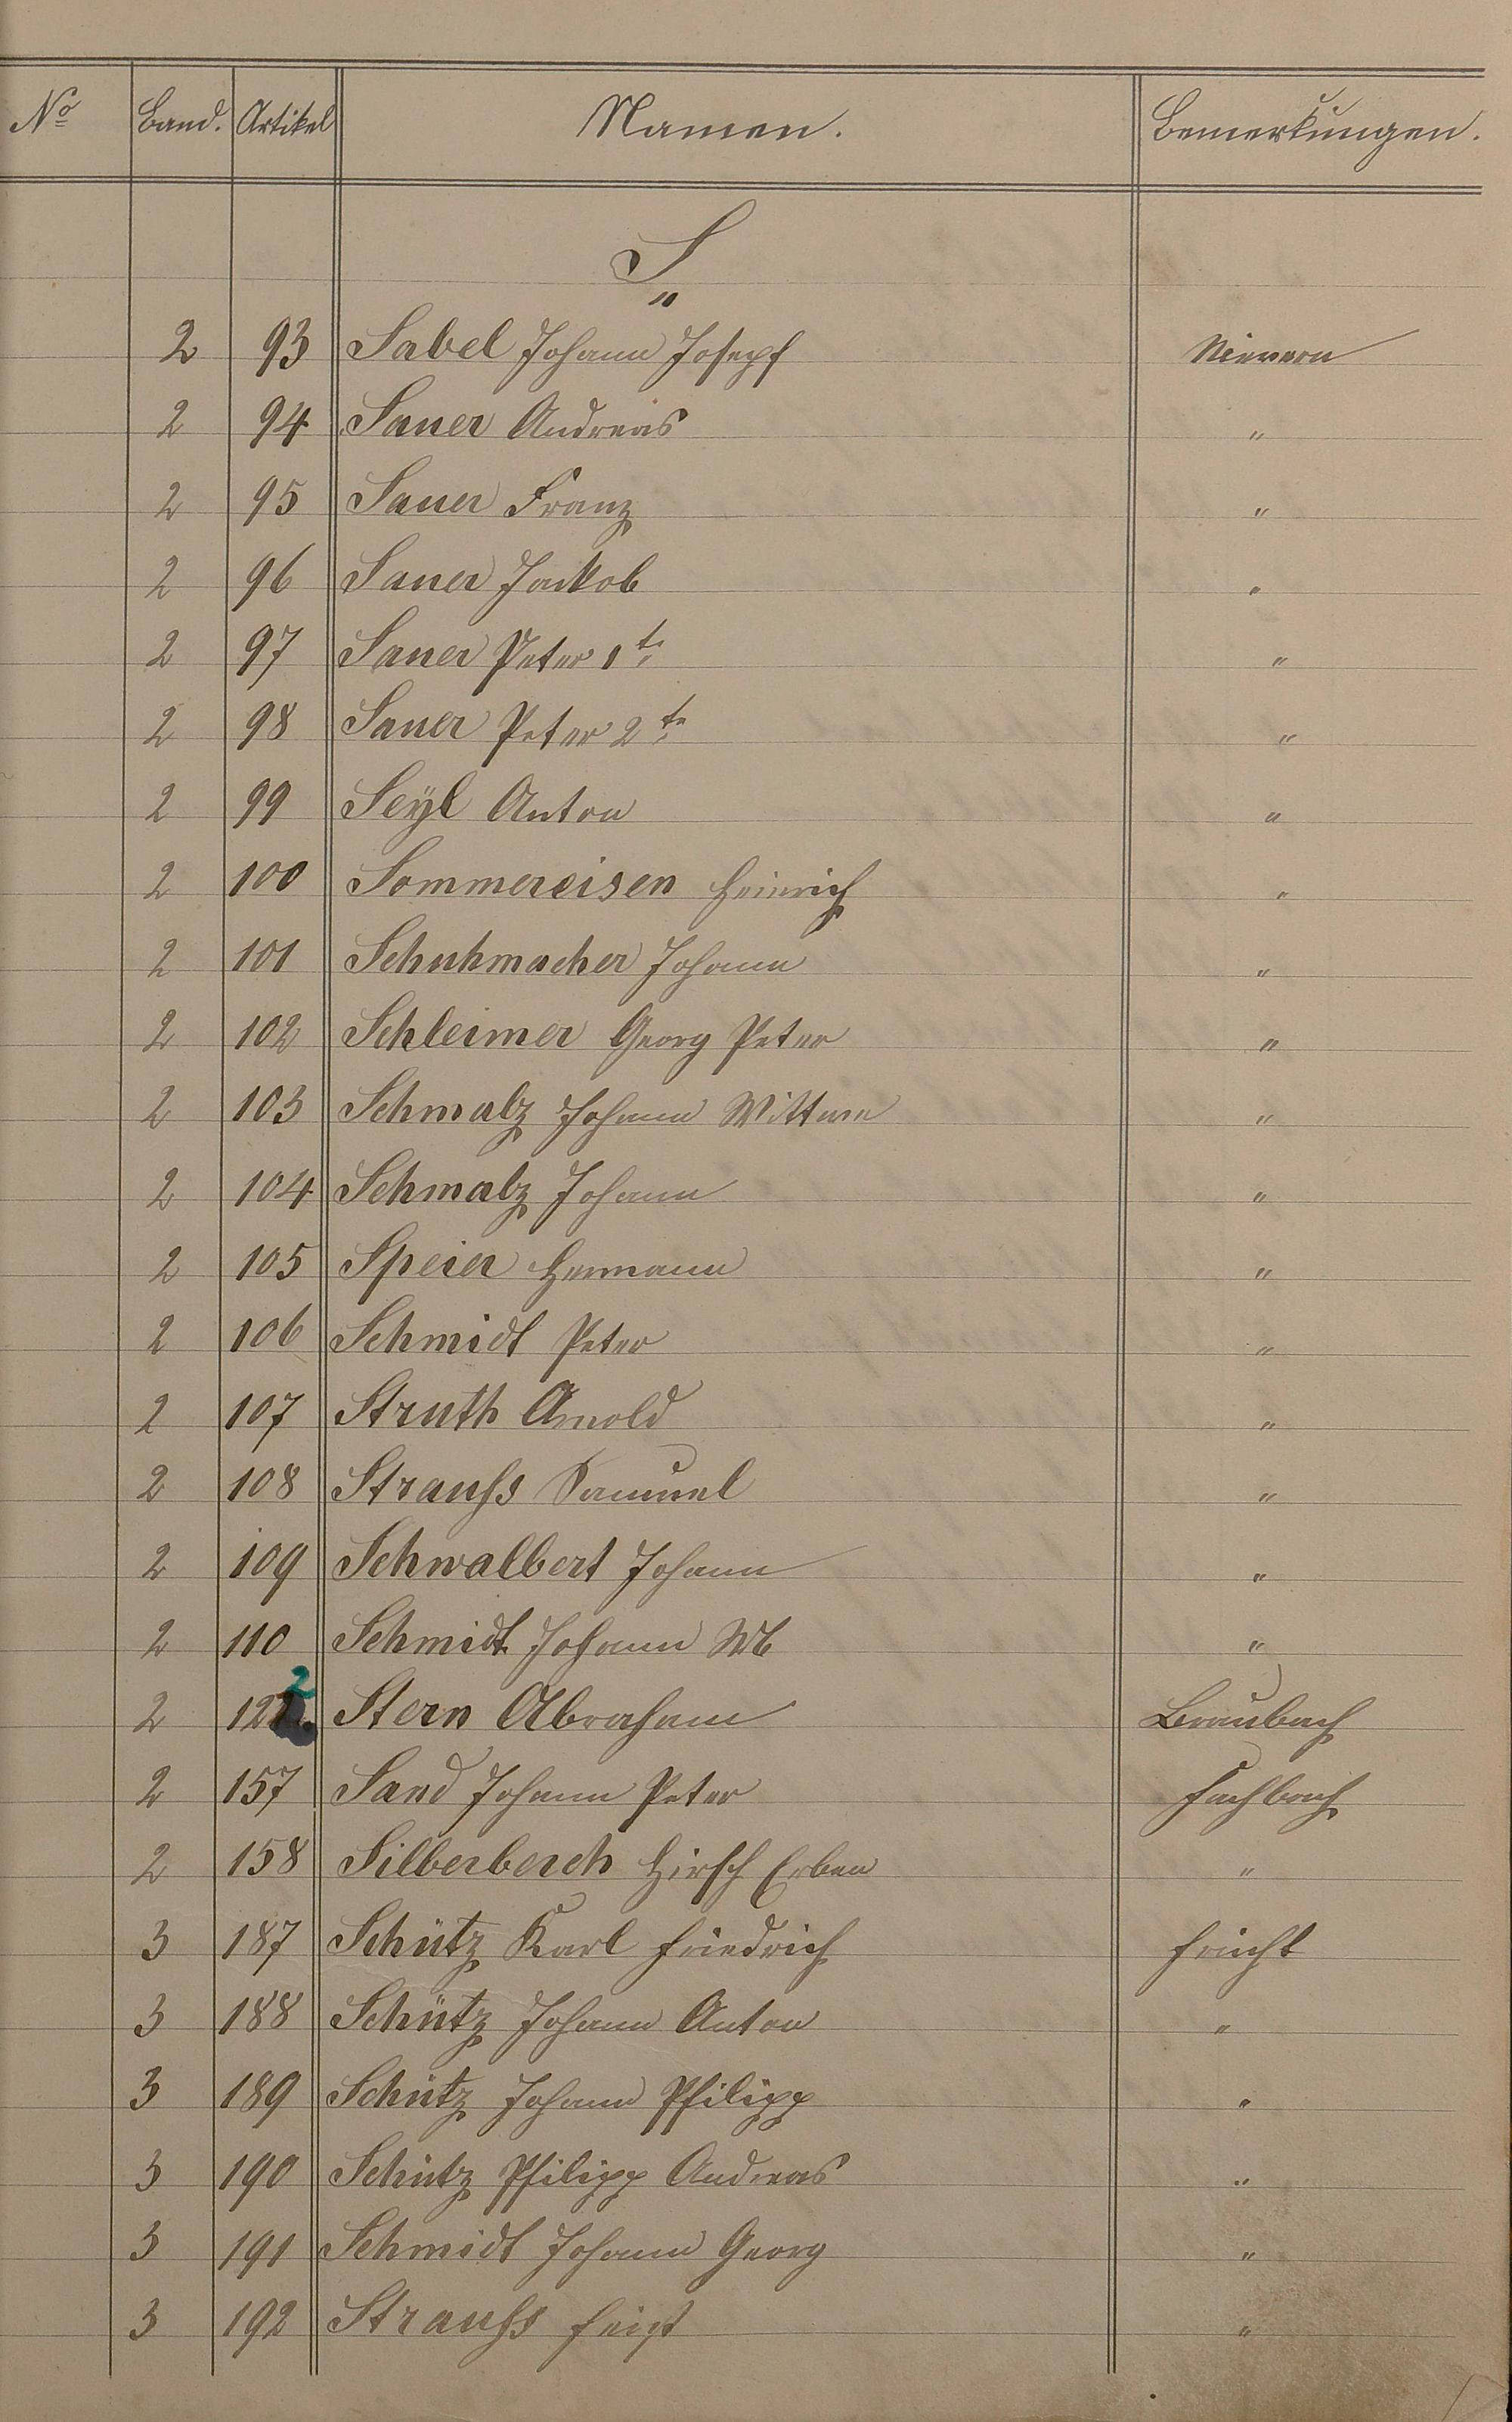 No Band. Artikel Namen. Bemerkungen.
S
2 93 Sabel Johann Joseph Nievern
2 94 Sauer Andreas "
2 95 Sauer Franz "
2 96 Sauer Jackob "
2 97 Sauer Peter 1te "
2 98 Sauer Peter 2te "
2 99 Seyl Anton "
2 100 Sommereisen Heinrich "
2 101 Schuhmacher Johann "
2 102 Schleimer Georg Peter "
2 103 Schmalz Johann Wittwe "
2 104 Schmalz Johann "
2 105 Speier Hermann "
2 106 Schmidt Peter "
2 107 Struth Arnold "
2 108 Strauss Samuel "
2 109 Schwalbert Johann "
2 110 Schmidt Johann Wb "
2 122 Stern Abraham Braubach
2 157 Sand Johann Peter Fachbach
2 158 Silberberch Hirsch Erben "
3 187 Schütz Karl Friedrich Frücht
3 188 Schütz Johann Anton "
3 189 Schütz Johann Philipp "
3 190 Schütz Philipp Andreas "
3 191 Schmidt Johann Georg "
3 192 Strauss Feist "